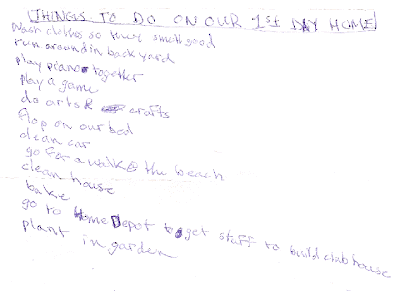 THINGS TO DO ON OUR 1st DAY HOME
wash clothes so they smell good
run around in back yard
play piano together
play a game
do arts & crafts
flop on our bed
clean car
go for a walk @ the beach
clean house
bake
go to Home Depot to get stuff to build clubhouse
plant in garden